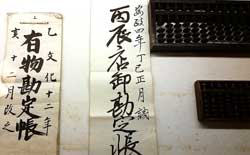 安政四年丁巳正月誠
丙辰店卸勘定帳
乙 文化十二年
有物勘定帳
亥 十二月改之